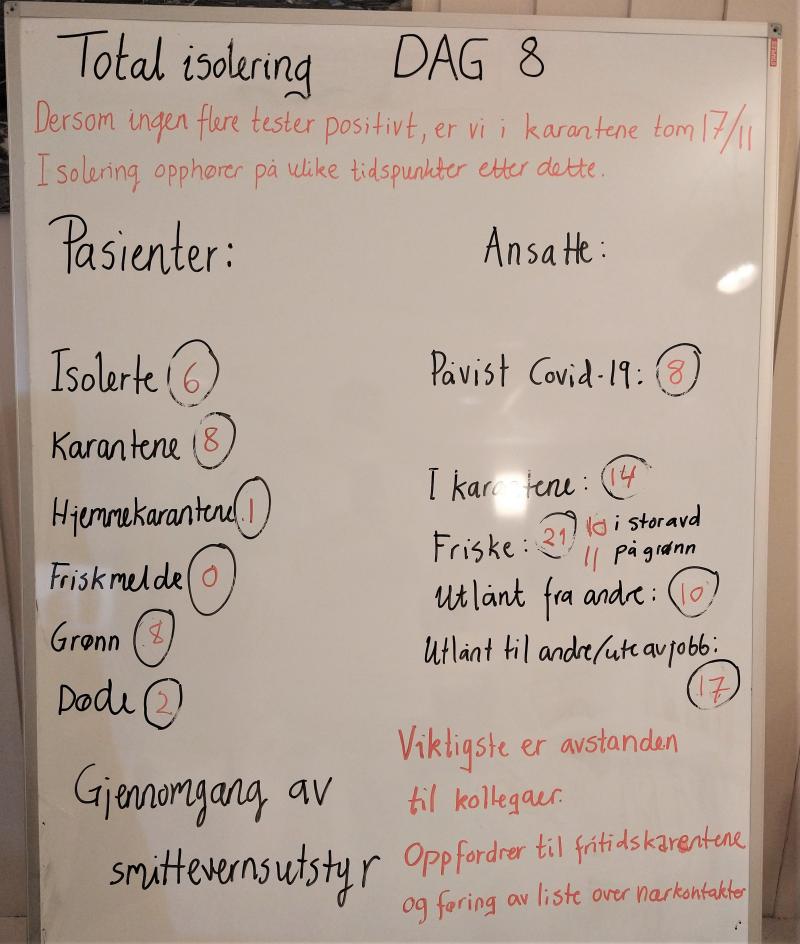 Total isolering DAG 8
Dersom ingen flere tester positivt, er vi i karantene tom 17/11
Isolering opphører på ulike tidspunkter etter dette.
Pasienter:
Isolerte 6
Karantene 8
Hjemmekarantene 1
Friskmelde 0
Grønn 8
Døde 2
Gjennomgang av
smittevernsutstyr
Ansatte:
Påvist Covid-19: 8
I karantene: 14
Friske: 21 10 i storavd
11 på grønn
Utlånt fra andre: 10
Utlånt til andre/ute av jobb:
17
Viktigste er avstanden
til kollegaer.
Oppfordrer til fritidskarentene
og føring av liste over nærkontakter